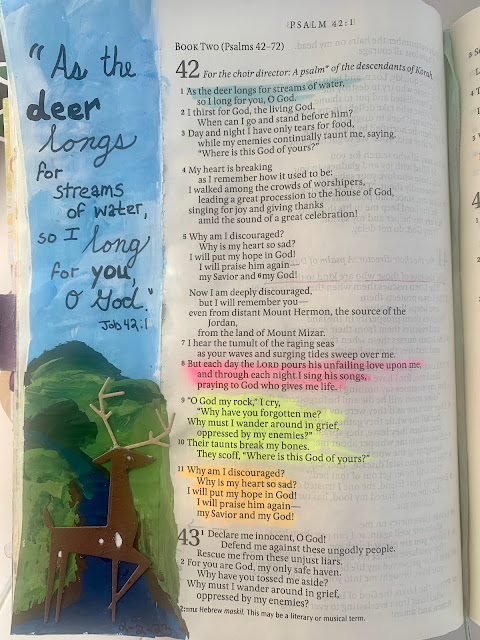 "As the
deer
longs
for
streams
of water,
so I long
for you,
O God."
Job 42:1
PSALM 42:1
BOOK TWO (Psalms 42–72)
42 For the choir director: A psalm* of the descendants of Korah.
1 As the deer longs for streams of water,
so I long for you, O God.
2 I thirst for God, the living God.
When can I go and stand before him?
3 Day and night I have only tears for food,
while my enemies continually taunt me, saying,
"Where is this God of yours?"
4 My heart is breaking
as I remember how it used to be:
I walked among the crowds of worshipers,
leading a great procession to the house of God,
singing for joy and giving thanks
amid the sound of a great celebration!
5 Why am I discouraged?
Why is my heart so sad?
I will put my hope in God!
I will praise him again—
my Savior and 6my God!
Now I am deeply discouraged,
but I will remember you—
even from distant Mount Hermon, the source of the
Jordan,
from the land of Mount Mizar.
7 I hear the tumult of the raging seas
as your waves and surging tides sweep over me.
8 But each day the LORD pours his unfailing love upon me,
and through each night I sing his songs,
praying to God who gives me life.
9 "O God my rock," I cry,
"Why have you forgotten me?
Why must I wander around in grief,
oppressed by my enemies?"
10 Their taunts break my bones.
They scoff, "Where is this God of yours?"
11 Why am I discouraged?
Why is my heart so sad?
I will put my hope in God!
I will praise him again—
my Savior and my God!
43 1 Declare me innocent, O God!
Defend me against these ungodly people.
Rescue me from these unjust liars.
2 For you are God, my only safe haven.
Why have you tossed me aside?
Why must I wander around in grief,
oppressed by my enemies?
2:TITLE Hebrew maskil. This may be a literary or musical term.